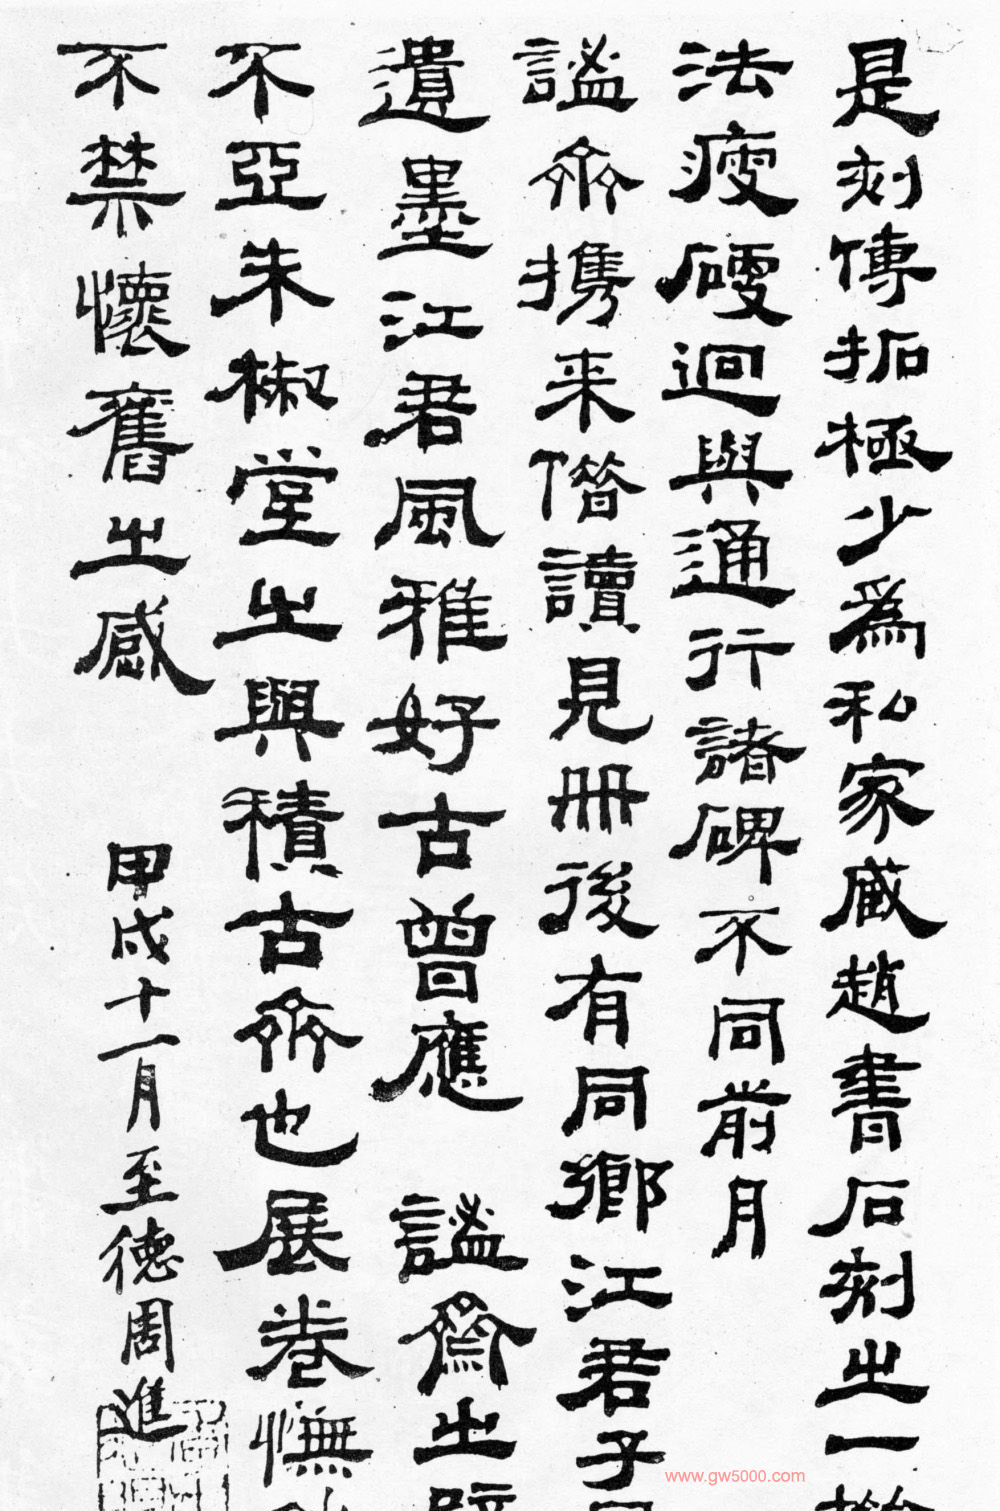 是刻傳拓極少爲私家藏趙書石刻之一
法瘦硬迥與通行諸碑不同前月
謐齊攜来借讀見冊後有同鄉江君子
遺墨江君風雅好古曾應 謐齋之
不亞朱椒堂之與積古齊也展卷憮
不禁懷舊之感
甲戌十一月至德周進
www.gw5000.com